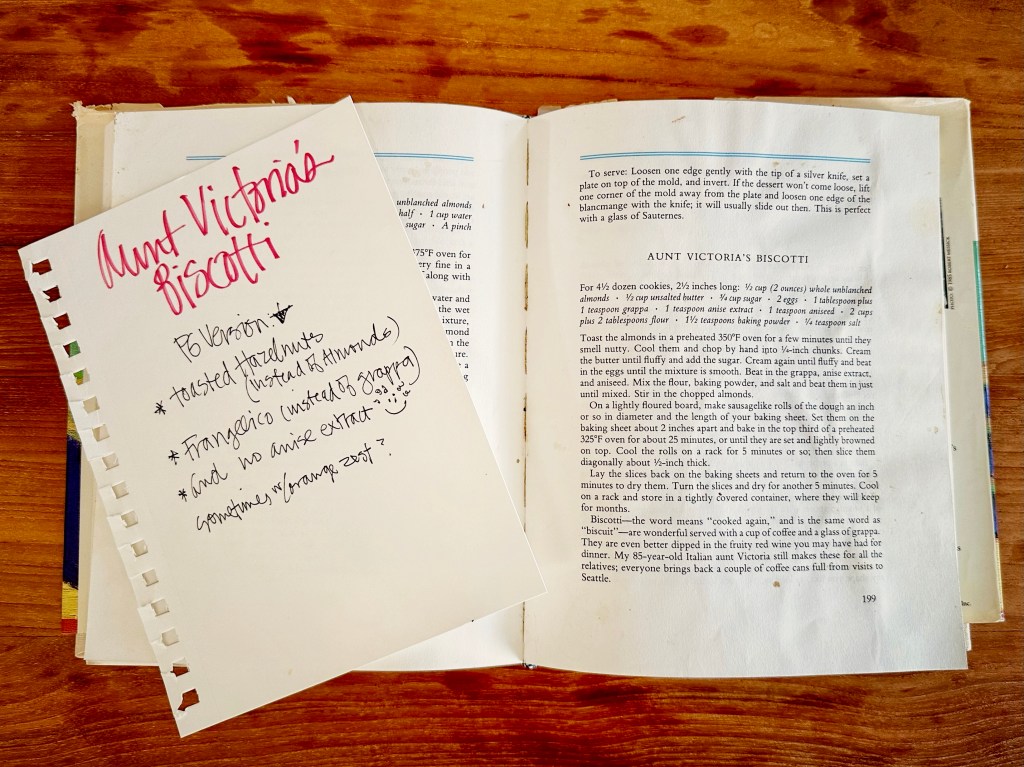 Aunt Victoria's
Biscotti
PG Version:
* toasted Hazelnuts
(instead of Almonds)
* Frangelico (instead of grappa)
* and no anise extract
sometimes w/orange zest?
unblanched almonds
half · 1 cup water
sugar · A pinch
375°F oven for
ery fine in a
along with
water and
the wet
ixture,
mond
in the
ture.
a
To serve: Loosen one edge gently with the tip of a silver knife, set a
plate on top of the mold, and invert. If the dessert won't come loose, lift
one corner of the mold away from the plate and loosen one edge of the
blancmange with the knife; it will usually slide out then. This is perfect
with a glass of Sauternes.
AUNT VICTORIA'S BISCOTTI
For 4½ dozen cookies, 2½ inches long: ½ cup (2 ounces) whole unblanched
almonds · ½ cup unsalted butter · ¾ cup sugar · 2 eggs · 1 tablespoon plus
1 teaspoon grappa · 1 teaspoon anise extract · 1 teaspoon aniseed · 2 cups
plus 2 tablespoons flour · 1½ teaspoons baking powder · ¼ teaspoon salt
Toast the almonds in a preheated 350°F oven for a few minutes until they
smell nutty. Cool them and chop by hand into ¼-inch chunks. Cream
the butter until fluffy and add the sugar. Cream again until fluffy and beat
in the eggs until the mixture is smooth. Beat in the grappa, anise extract,
and aniseed. Mix the flour, baking powder, and salt and beat them in just
until mixed. Stir in the chopped almonds.
On a lightly floured board, make sausagelike rolls of the dough an inch
or so in diameter and the length of your baking sheet. Set them on the
baking sheet about 2 inches apart and bake in the top third of a preheated
325°F oven for about 25 minutes, or until they are set and lightly browned
on top. Cool the rolls on a rack for 5 minutes or so; then slice them
diagonally about ½-inch thick.
Lay the slices back on the baking sheets and return to the oven for 5
minutes to dry them. Turn the slices and dry for another 5 minutes. Cool
on a rack and store in a tightly covered container, where they will keep
for months.
Biscotti—the word means "cooked again," and is the same word as
"biscuit"—are wonderful served with a cup of coffee and a glass of grappa.
They are even better dipped in the fruity red wine you may have had for
dinner. My 85-year-old Italian aunt Victoria still makes these for all the
relatives; everyone brings back a couple of coffee cans full from visits to
Seattle.
199
Inc.